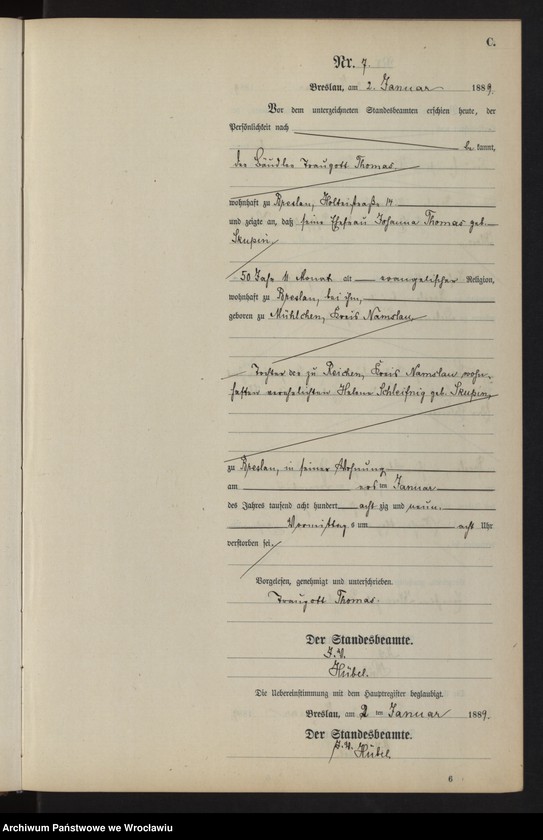 C.
Nr. 7.
Breslau, am 2. Januar 1889.
Vor dem unterzeichneten Standesbeamten erschien heute, der
Persönlichkeit nach
bekannt,
der Händler Traugott Thomas.
wohnhaft zu Breslau, Holteistraße 14
und zeigte an, daß seine Ehefrau Johanna Thomas geb.
Skupin
50 Jahr Monat alt evangelischer Religion,
wohnhaft zu Breslau, bei ihm,
geboren zu Mühlchen, Kreis Namslau,
Tochter der zu Reichen, Kreis Namslau wohn-
haften verehelichten Helene Schleifnig geb. Skupin,
zu Breslau, in seiner Wohnung
am ersten Januar
des Jahres tausend acht hundert achtzig und neun.
Vormittags um acht Uhr
verstorben sei.
Vorgelesen, genehmigt und unterschrieben.
Traugott Thomas.
Der Standesbeamte.
J. V.
Hübel.
Die Uebereinstimmung mit dem Hauptregister beglaubigt.
Breslau, am 2ten Januar 1889.
Der Standesbeamte.
J. V. Hübel
6
Archiwum Państwowe we Wrocławiu